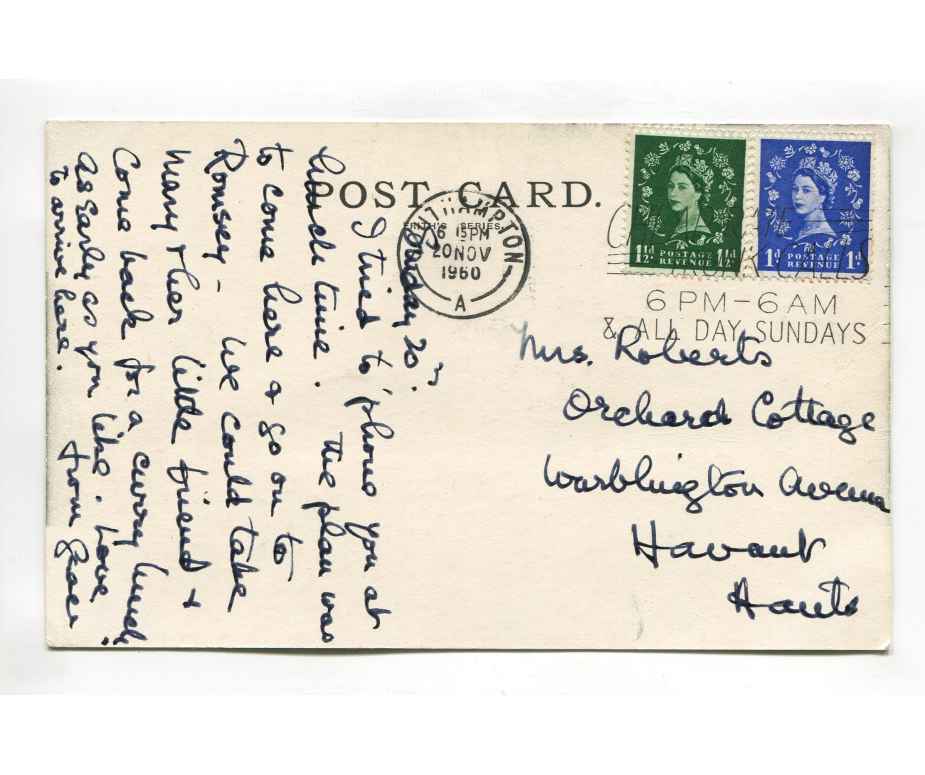 POST CARD.
SERIES
SOUTHAMPTON
6 15PM
20 NOV
1960
A
TRUNK CALLS
6 PM - 6 AM
& ALL DAY SUNDAYS
1½d POSTAGE REVENUE 1½d
1d POSTAGE REVENUE 1d
Sunday 20th.
I tried to 'phone you at
lunch time. The plan was
to come here & go on to
Romsey - We could take
Mary & her little friend &
Come back for a curry lunch.
As early as you like. Love
to arrive here. from Grace
Mrs. Roberts
Orchard Cottage
Warblington Avenue
Havant
Hants